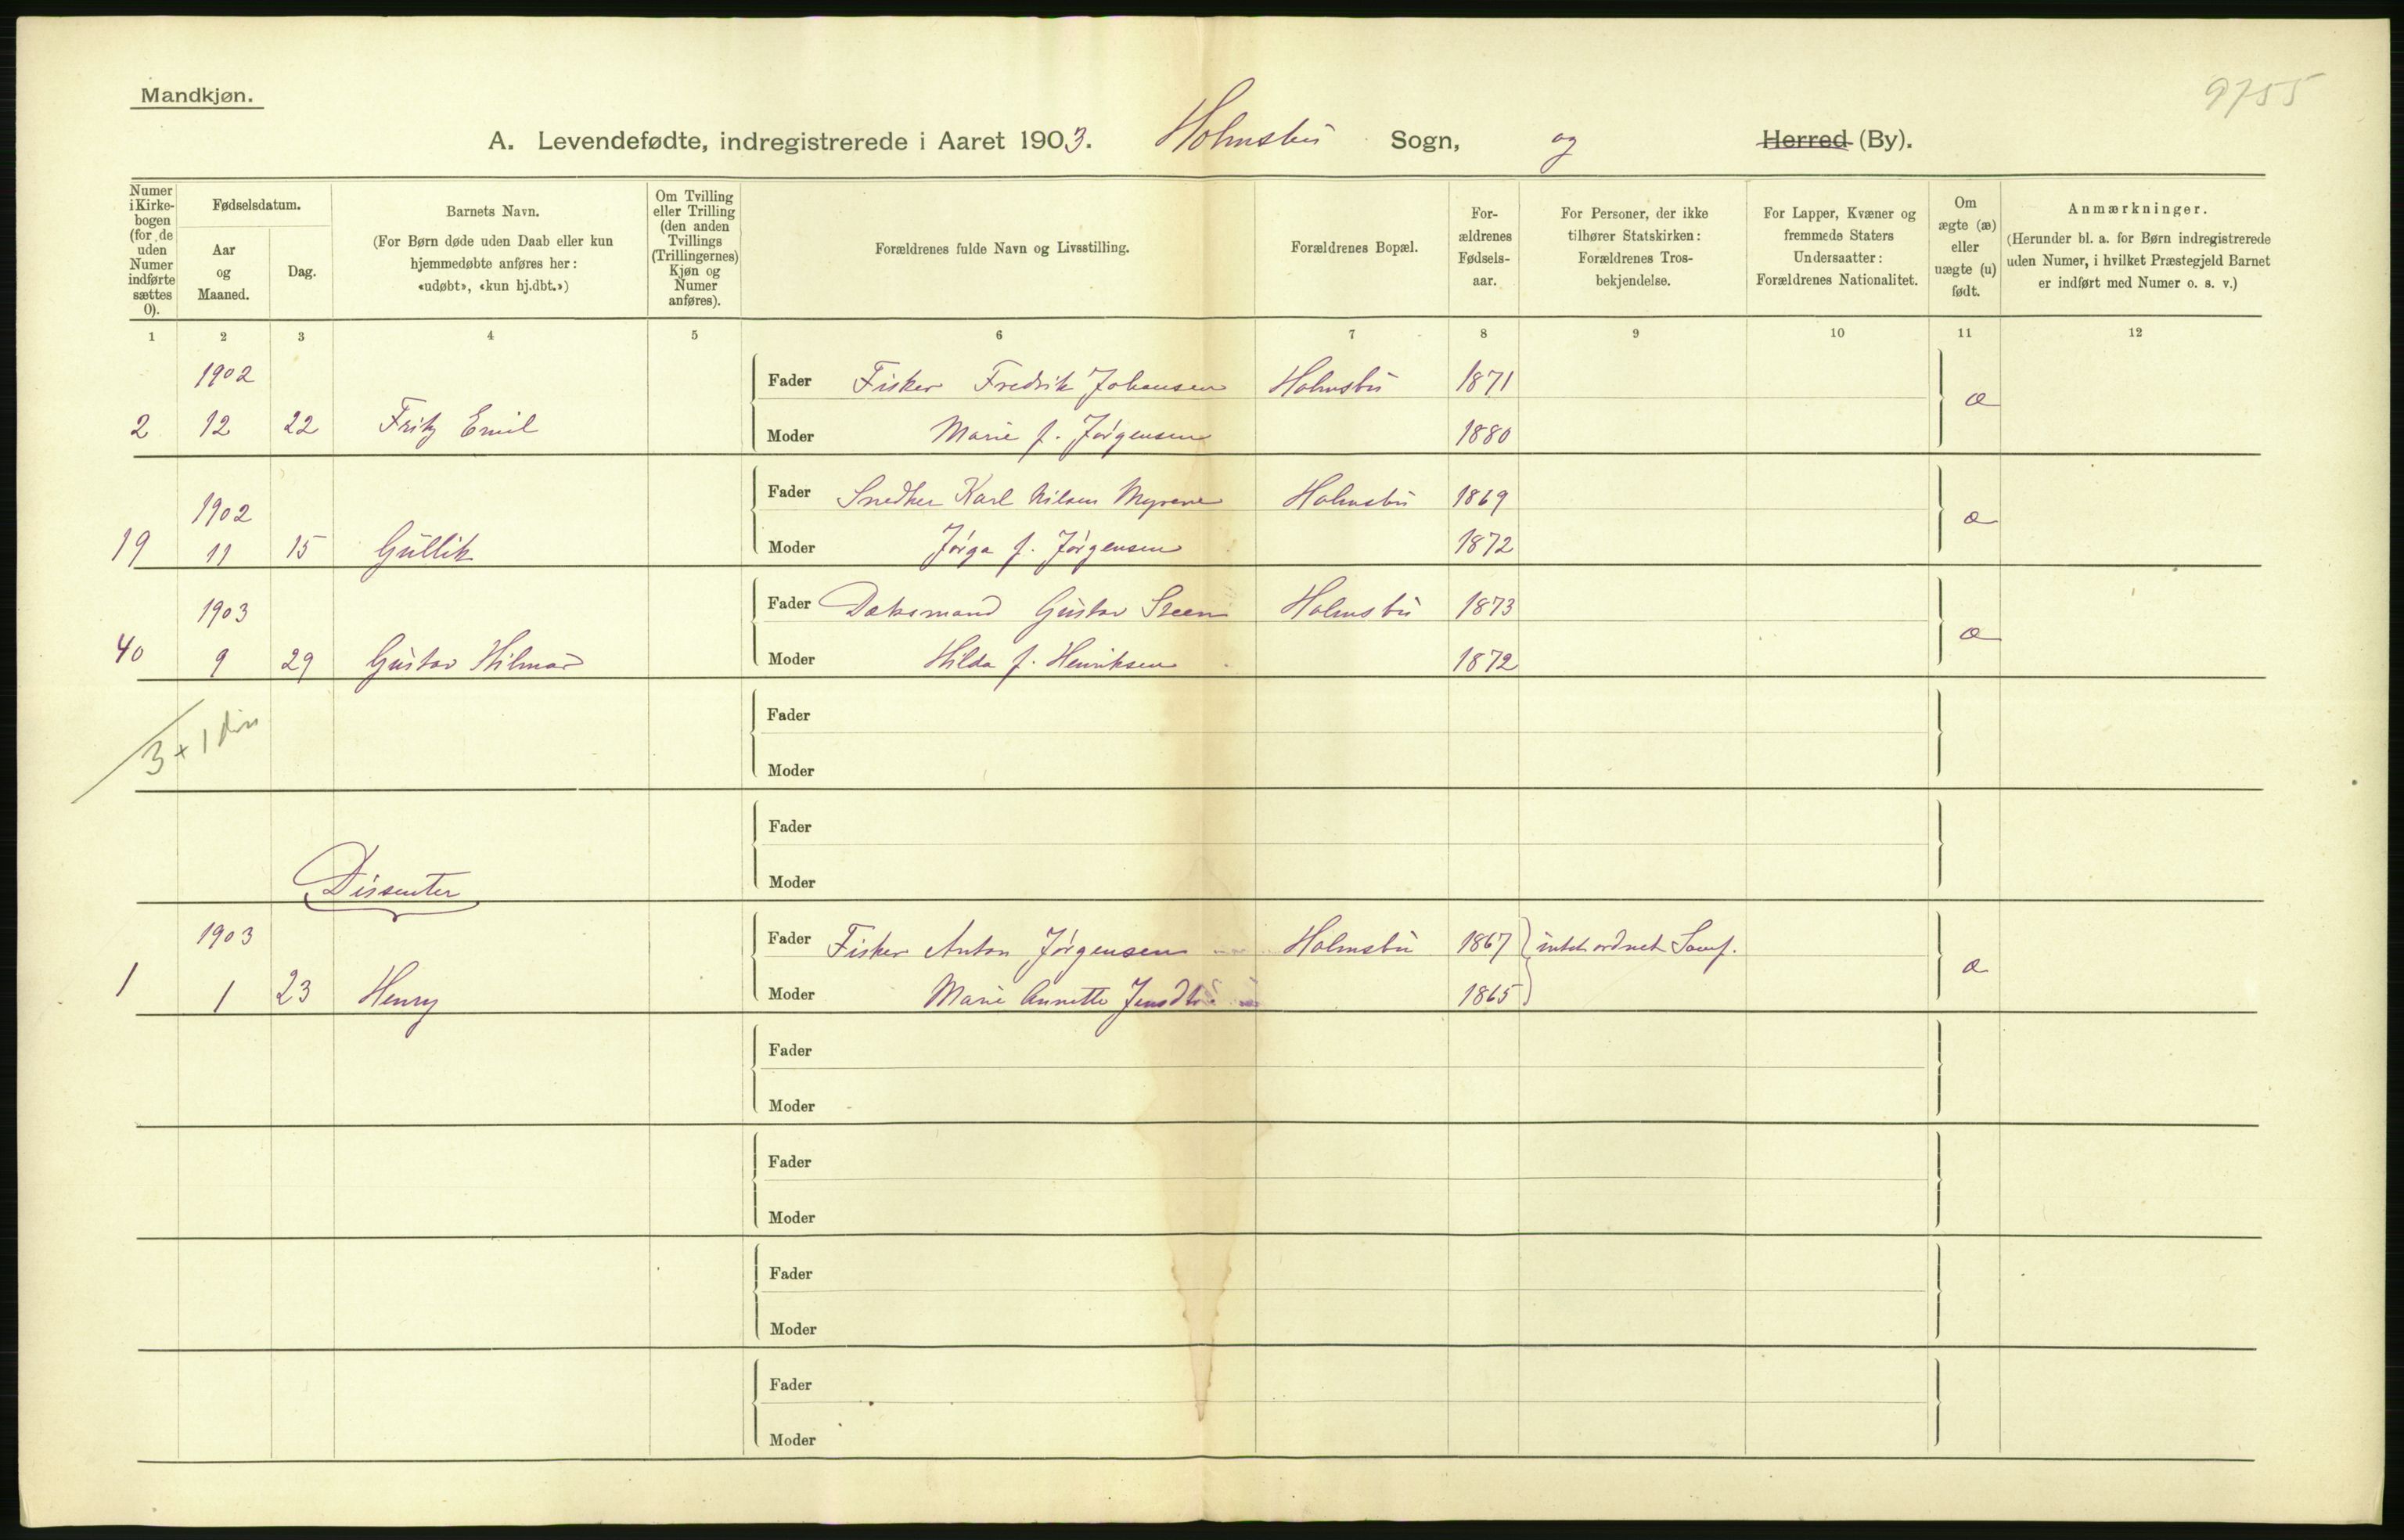 Mandkjøn.
9755
A. Levendefødte, indregistrerede i Aaret 1903. Holmsbu Sogn, og Herred (By).
Numer i Kirke-bogen (for de uden Numer indførte sættes 0).
Fødselsdatum.
Aar og Maaned.
Dag.
Barnets Navn.
(For Børn døde uden Daab eller kun hjemmedøbte anføres her: «udøbt», «kun hj.dbt.»)
Om Tvilling eller Trilling (den anden Tvillings (Trillingernes) Kjøn og Numer anføres).
Forældrenes fulde Navn og Livsstilling.
Forældrenes Bopæl.
For-ældrenes Fødsels-aar.
For Personer, der ikke tilhører Statskirken: Forældrenes Tros-bekjendelse.
For Lapper, Kvæner og fremmede Staters Undersaatter: Forældrenes Nationalitet.
Om ægte (æ) eller uægte (u) født.
Anmærkninger.
(Herunder bl. a. for Børn indregistrerede uden Numer, i hvilket Præstegjeld Barnet er indført med Numer o. s. v.)
1 2 3 4 5 6 7 8 9 10 11 12
1902 Fader Fisker Fredrik Johansen Holmsbu 1871 æ
2 12 22 Fritz Emil Moder Marie f. Jørgensen 1880
1902 Fader Snedker Karl Nilsen Myrene Holmsbu 1869 æ
19 11 15 Gullik Moder Jørga f. Jørgensen 1872
1903 Fader Dæksmand Gustav Steen Holmsbu 1873 æ
40 9 29 Gustav Hilmar Moder Hilda f. Henriksen 1872
Fader
3 + 1 diss
Moder
Fader
Dissenter Moder
1903 Fader Fisker Anton Jørgensen Holmsbu 1867 intet ordnet Samf. æ
1 1 23 Henry Moder Marie Annette Jensdtr. 1865
Fader
Moder
Fader
Moder
Fader
Moder
Fader
Moder